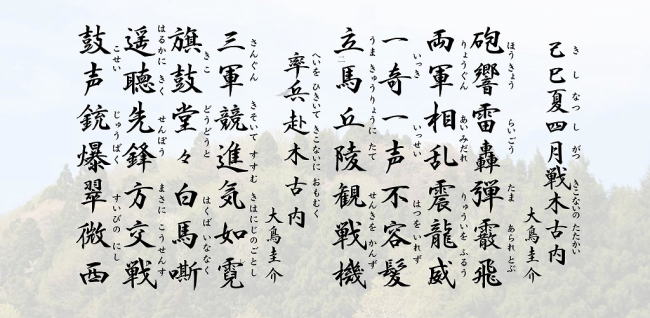 己巳夏四月戦木古内
きしなつしがつきこないのたたかい
大鳥圭介
砲響雷轟弾霰飛
ほうきょうらいごうたまあられとぶ
両軍相乱震龍威
りょうぐんあいみだれりゅういをふるう
一奇一声不容髪
いっきいっせいはつをいれず
立馬丘陵観戦機
うまきゅうりょうにたてせんきをかんず
率兵赴木古内
へいをひきいてきこないにおもむく
大鳥圭介
三軍競進気如霓
さんぐんきそいてすすむきはにじのごとし
旗鼓堂々白馬嘶
きこどうどうとはくばいななく
遥聴先鋒方交戦
はるかにきくせんぽうまさにこうせんす
鼓声銃爆翠微西
こせいじゅうばくすいびのにし